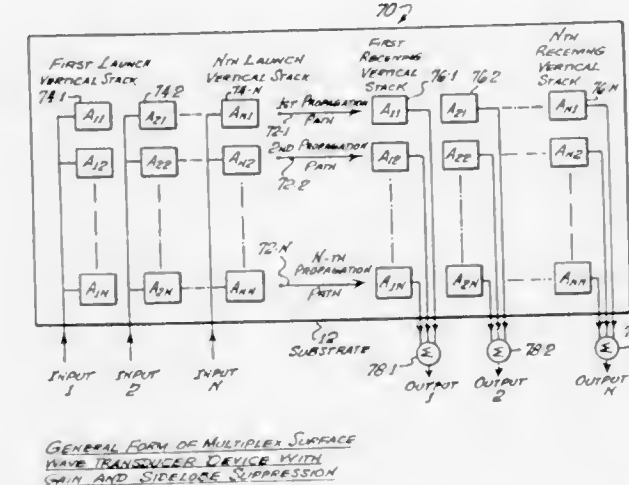 70
FIRST LAUNCH
VERTICAL STACK
NTH LAUNCH
VERTICAL STACK
FIRST
RECEIVING
VERTICAL
STACK
NTH
RECEIVING
VERTICAL
STACK
74-1
74-2
74-N
76-1
76-2
76-N
A11
A21
AN1
1ST PROPAGATION
PATH
72-1
A11
A21
AN1
A12
A22
AN2
2ND PROPAGATION
PATH
72-2
A12
A22
AN2
72-N
N-TH
PROPAGATION
PATH
A1N
A2N
ANN
A1N
A2N
ANN
12
SUBSTRATE
Σ
Σ
Σ
78-1
78-2
INPUT
1
INPUT
2
INPUT
N
OUTPUT
1
OUTPUT
2
OUTPUT
N
GENERAL FORM OF MULTIPLEX SURFACE
WAVE TRANSDUCER DEVICE WITH
GAIN AND SIDELOBE SUPPRESSION